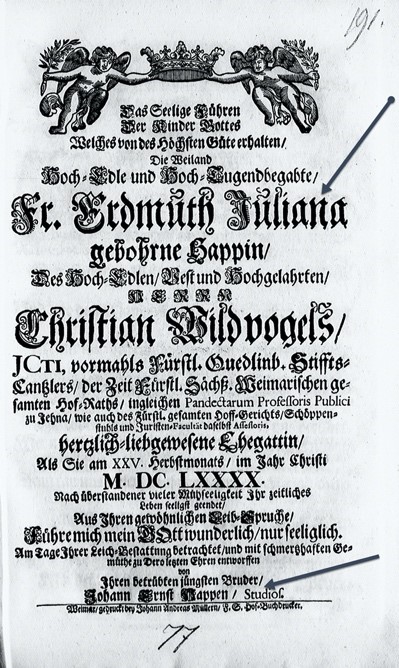 191.
Das Seelige Führen
Der Kinder Gottes
Welches von des Höchsten Güte erhalten/
Die Weiland
Hoch-Edle und Hoch-Tugendbegabte/
Fr. Erdmuth Juliana
gebohrne Happin/
Des Hoch-Edlen/ Vest und Hochgelahrten/
HERRN
Christian Wildvogels/
JCTI, vormahls Fürstl. Quedlinb. Stiffts-
Cantzlers/ der Zeit Fürstl. Sächß. Weimarischen ge-
samten Hof-Raths/ ingleichen Pandectarum Professoris Publici
zu Jehna/ wie auch des Fürstl. gesamten Hoff-Gerichts/ Schöppen-
stuhls und Juristen-Facultät daselbst Assessoris,
hertzlich-liebgewesene Ehegattin/
Als Sie am XXV. Herbstmonats/ im Jahr Christi
M. DC. LXXXX.
Nach überstandener vieler Mühseeligkeit Ihr zeitliches
Leben seeligst geendet/
Aus Ihren gewöhnlichen Leib-Spruche/
Führe mich mein GOtt wunderlich/ nur seeliglich.
Am Tage Ihrer Leich-Bestattung betrachtet/ und mit schmertzhaften Ge-
müthe zu Dero letzten Ehren entworffen
von
Ihren betrübten jüngsten Bruder/
Johann Ernst Happen/ Studios.
Weimar/ gedruckt bey Johann Andreas Müllern/ F. S. Hof-Buchdrucker.
77